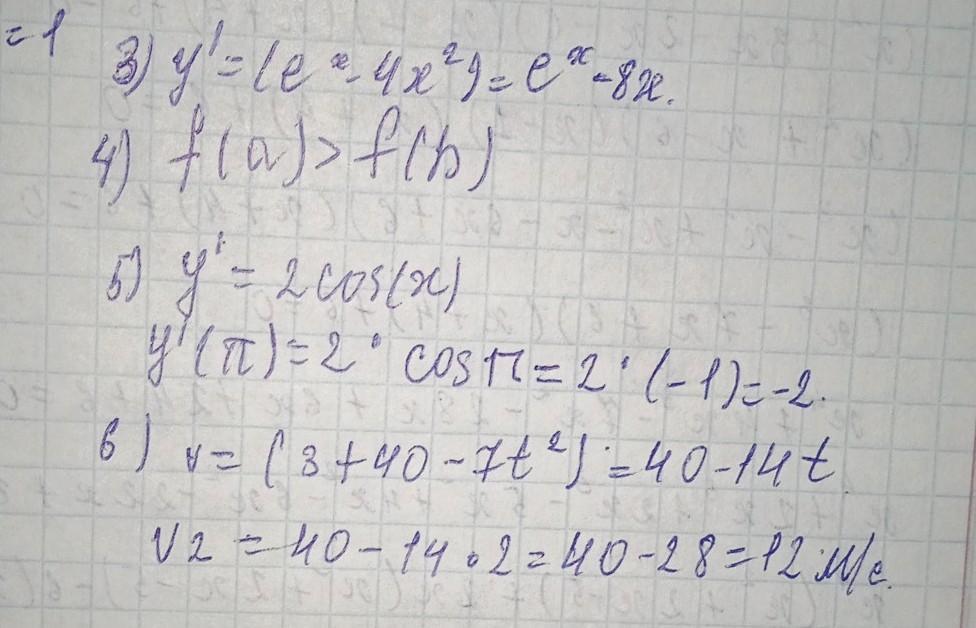 =1
3) y' = (e^x - 4x²) = e^x - 8x.
4) f(a) > f(b)
5) y' = 2cos(x)
y'(π) = 2 · cos π = 2 · (-1) = -2.
6) v = (3 + 40 - 7t²)' = 40 - 14t
V2 = 40 - 14 · 2 = 40 - 28 = 12 м/с.